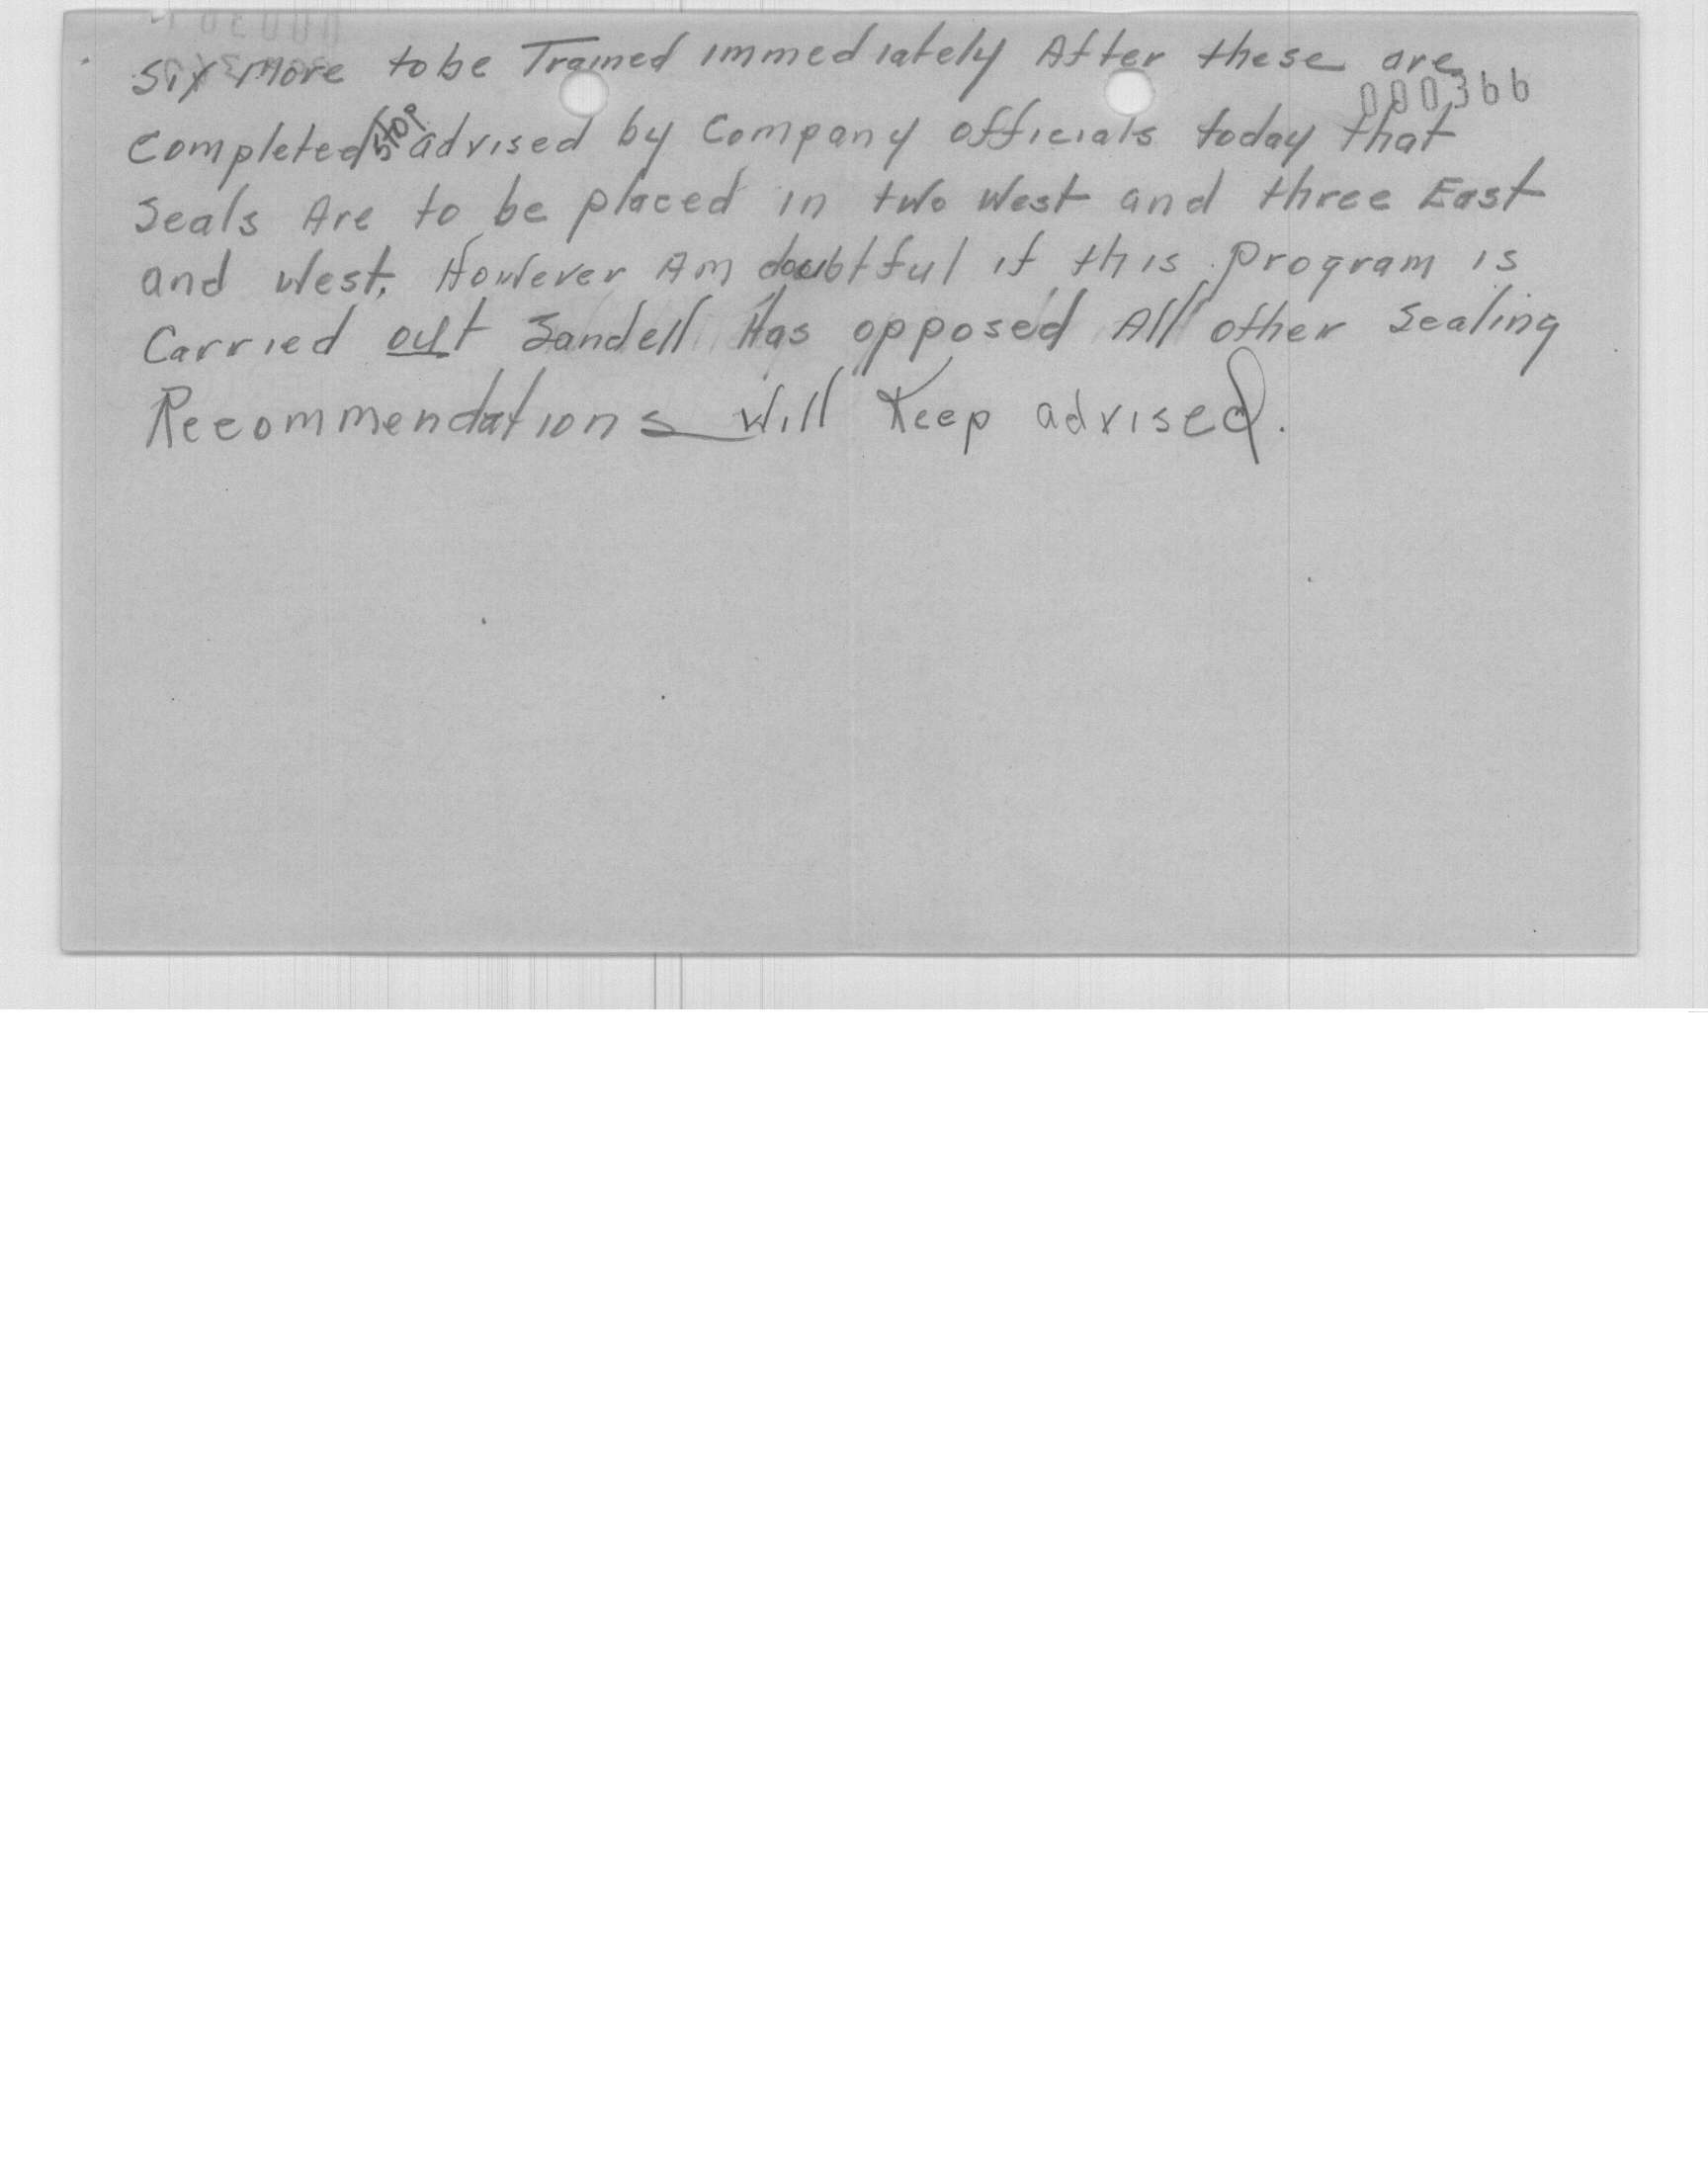 Six more to be Trained immediately After these are
000366
completed stop advised by Company officials today that
Seals Are to be placed in two West and three East
and West. However Am doubtful if this program is
Carried out Sandell Has opposed All other Sealing
Recommendations Will Keep advised.